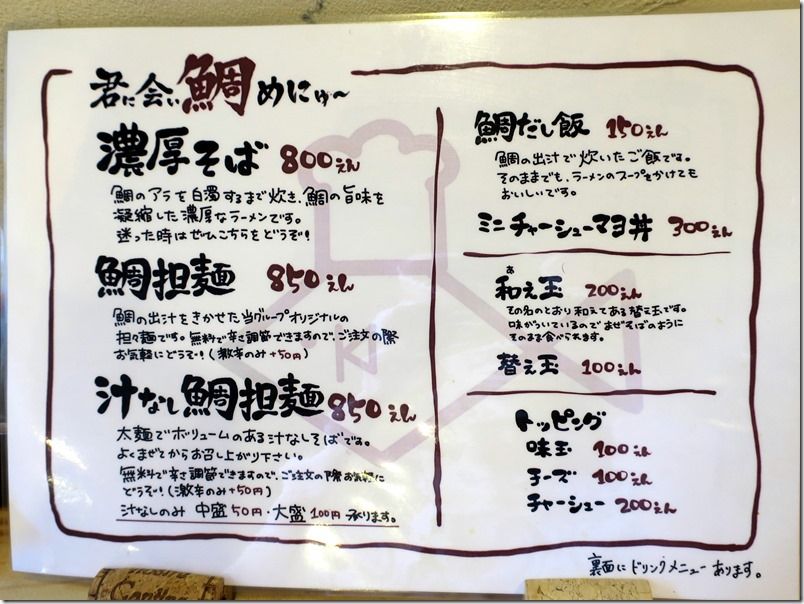 君に会い鯛めにゅ〜
濃厚そば 800えん
鯛のアラを白濁するまで炊き、鯛の旨味を
凝縮した濃厚なラーメンです。
迷った時はぜひこちらをどうぞ!
鯛担麺 850えん
鯛の出汁をきかせた当グループオリジナルの
担々麺です。無料で辛さ調節できますので、ご注文の際
お気軽にどうぞ!(激辛のみ+50円)
汁なし鯛担麺 850えん
太麺でボリュームのある汁なしそばです。
よくまぜてからお召し上がり下さい。
無料で辛さ調節できますので、ご注文の際お気軽に
どうぞ!(激辛のみ+50円)
汁なしのみ 中盛50円・大盛100円 承ります。
鯛だし飯 150えん
鯛の出汁で炊いたご飯です。
そのままでも、ラーメンのスープをかけても
おいしいです。
ミニチャーシューマヨ丼 300えん
あ
和え玉 200えん
その名のとおり和えてある替え玉です。
味がついているのでまぜそばのように
そのまま食べられます。
替え玉 100えん
トッピング
味玉 100えん
チーズ 100えん
チャーシュー 200えん
裏面にドリンクメニューあります。